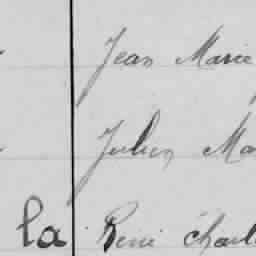 Jean Marie
Julien Ma
la René Charl